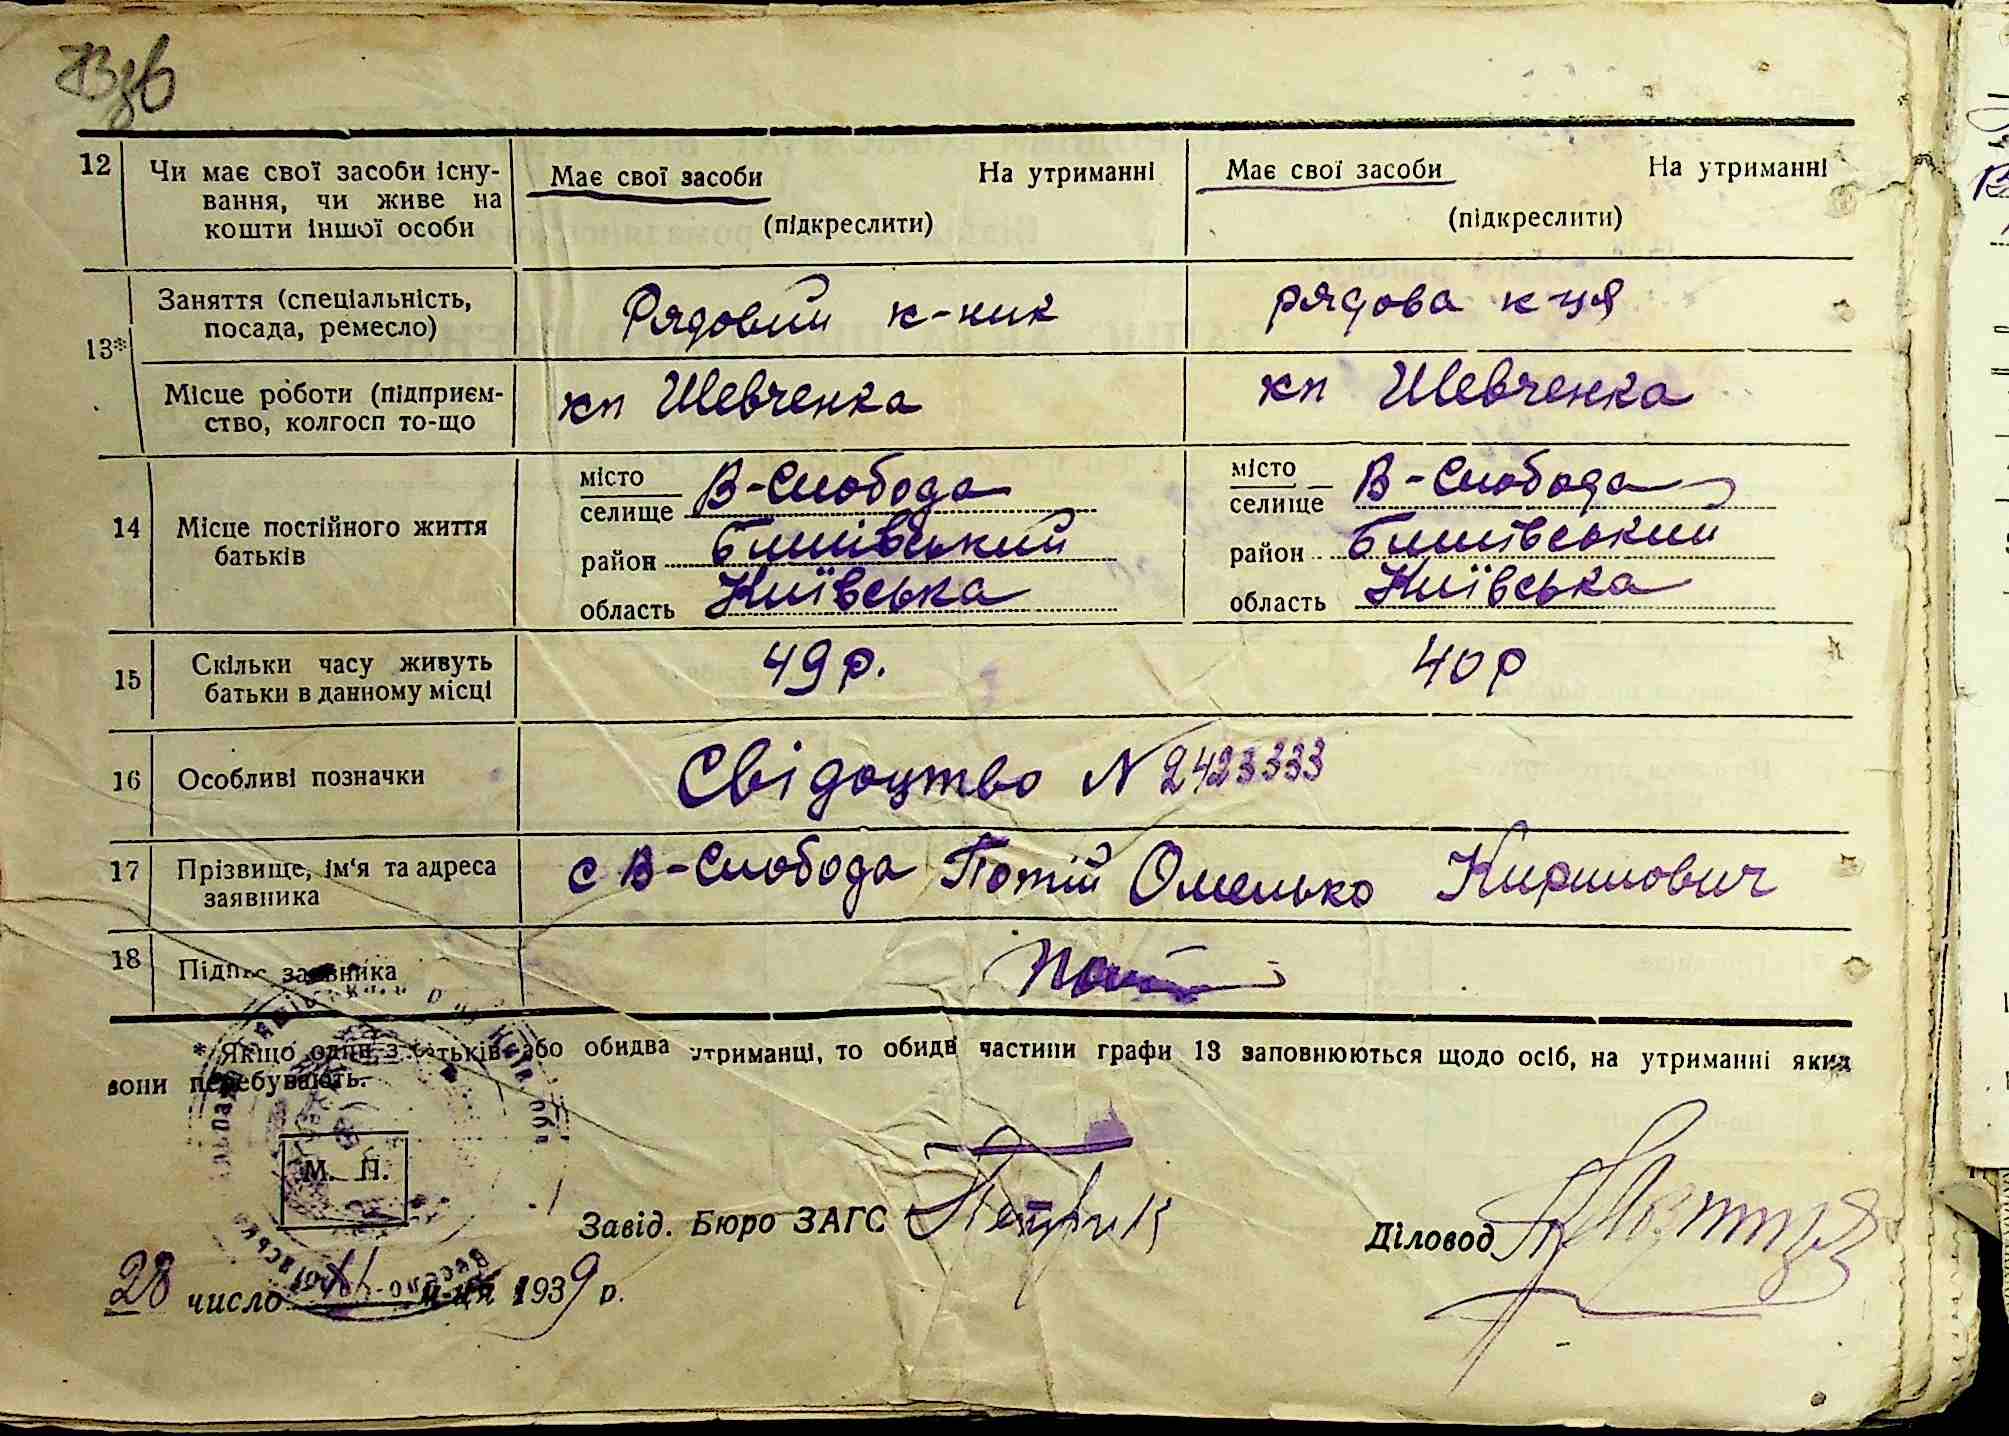 12 Чи має свої засоби існу- Має свої засоби На утриманні Має свої засоби На утриманні
вання, чи живе на
кошти іншої особи (підкреслити) (підкреслити)
13* Заняття (спеціальність, Рядовий к-ник рядова к-ця
посада, ремесло)
Місце роботи (підприєм- кп Шевченка кп Шевченка
ство, колгосп то-що
14 Місце постійного життя батьків
місто селище В-Слобода місто селище В-Слобода
район Бишівський район Бишівський
область Київська область Київська
15 Скільки часу живуть 49 р. 40 р
батьки в данному місці
16 Особливі позначки Свідоцтво N 2423333
17 Прізвище, ім'я та адреса с В-Слобода Потій Омелько Кирилович
заявника
18 Підпис заявника
* Якщо один з батьків або обидва утриманці, то обидві частини графи 13 заповнюються щодо осіб, на утриманні яких
вони перебувають.
М. П.
Завід. Бюро ЗАГС Діловод
28 число м-ця 1939 р.